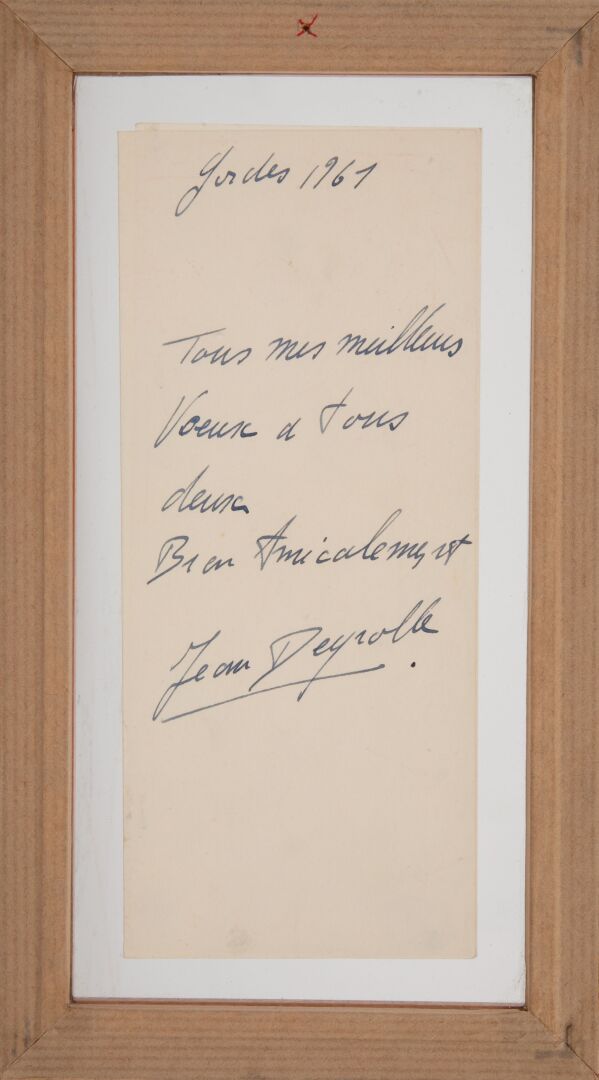 Gordes 1961
Tous mes meilleurs
Voeux a tous
deux
Bien Amicalement
Jean Deyrolle.